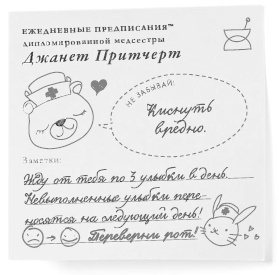 ЕЖЕДНЕВНЫЕ ПРЕДПИСАНИЯ™
дипломированной медсестры
Джанет Притчерт
НЕ ЗАБЫВАЙ:
Киснуть
вредно.
Заметки:
Жду от тебя по 3 улыбки в день.
Невыполненные улыбки пере-
носятся на следующий день!
Переверни рот!